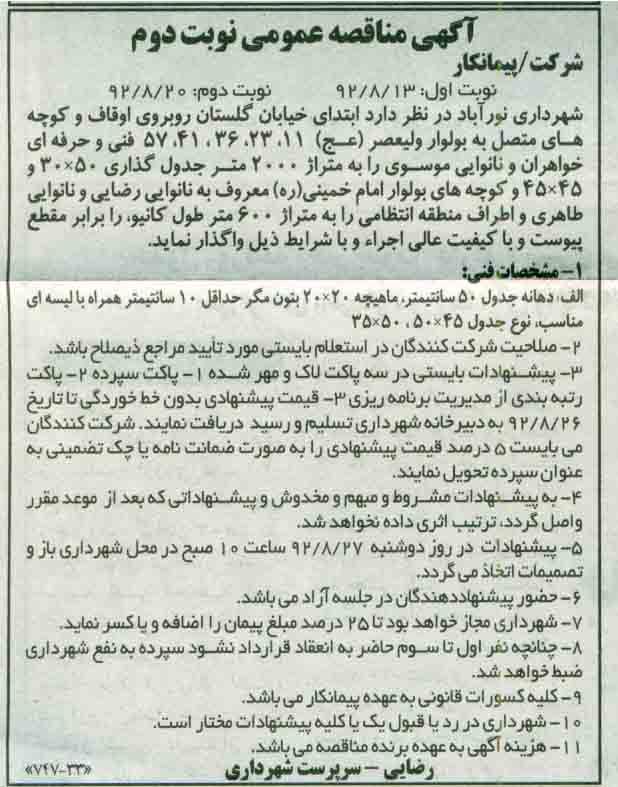 آگهی مناقصه عمومی نوبت دوم
شرکت/پیمانکار
نوبت اول: ۹۲/۸/۱۳ نوبت دوم: ۹۲/۸/۲۰
شهرداری نورآباد در نظر دارد ابتدای خیابان گلستان روبروی اوقاف و کوچه
های متصل به بولوار ولیعصر (عج) ۱۱، ۲۳، ۳۶، ۴۱، ۵۷ فنی و حرفه ای
خواهران و نانوایی موسوی را به متراژ ۲۰۰۰ متر جدول گذاری ۵۰×۳۰ و
۴۵×۴۵ و کوچه های بولوار امام خمینی(ره) معروف به نانوایی رضایی و نانوایی
طاهری و اطراف منطقه انتظامی را به متراژ ۶۰۰ متر طول کانیو، را برابر مقطع
پیوست و با کیفیت عالی اجراء و با شرایط ذیل واگذار نماید.
۱- مشخصات فنی:
الف: دهانه جدول ۵۰ سانتیمتر، ماهیچه ۲۰×۲۰ بتون مگر حداقل ۱۰ سانتیمتر همراه با لیسه ای
مناسب، نوع جدول ۴۵×۵۰ ، ۵۰×۳۵
۲- صلاحیت شرکت کنندگان در استعلام بایستی مورد تأیید مراجع ذیصلاح باشد.
۳- پیشنهادات بایستی در سه پاکت لاک و مهر شده ۱- پاکت سپرده ۲- پاکت
رتبه بندی از مدیریت برنامه ریزی ۳- قیمت پیشنهادی بدون خط خوردگی تا تاریخ
۹۲/۸/۲۶ به دبیرخانه شهرداری تسلیم و رسید دریافت نمایند. شرکت کنندگان
می بایست ۵ درصد قیمت پیشنهادی را به صورت ضمانت نامه یا چک تضمینی به
عنوان سپرده تحویل نمایند.
۴- به پیشنهادات مشروط و مبهم و مخدوش و پیشنهاداتی که بعد از موعد مقرر
واصل گردد، ترتیب اثری داده نخواهد شد.
۵- پیشنهادات در روز دوشنبه ۹۲/۸/۲۷ ساعت ۱۰ صبح در محل شهرداری باز و
تصمیمات اتخاذ می گردد.
۶- حضور پیشنهاددهندگان در جلسه آزاد می باشد.
۷- شهرداری مجاز خواهد بود تا ۲۵ درصد مبلغ پیمان را اضافه و یا کسر نماید.
۸- چنانچه نفر اول تا سوم حاضر به انعقاد قرارداد نشود سپرده به نفع شهرداری
ضبط خواهد شد.
۹- کلیه کسورات قانونی به عهده پیمانکار می باشد.
۱۰- شهرداری در رد یا قبول یک یا کلیه پیشنهادات مختار است.
۱۱- هزینه آگهی به عهده برنده مناقصه می باشد.
رضایی – سرپرست شهرداری «۷۴۷-۳۳»